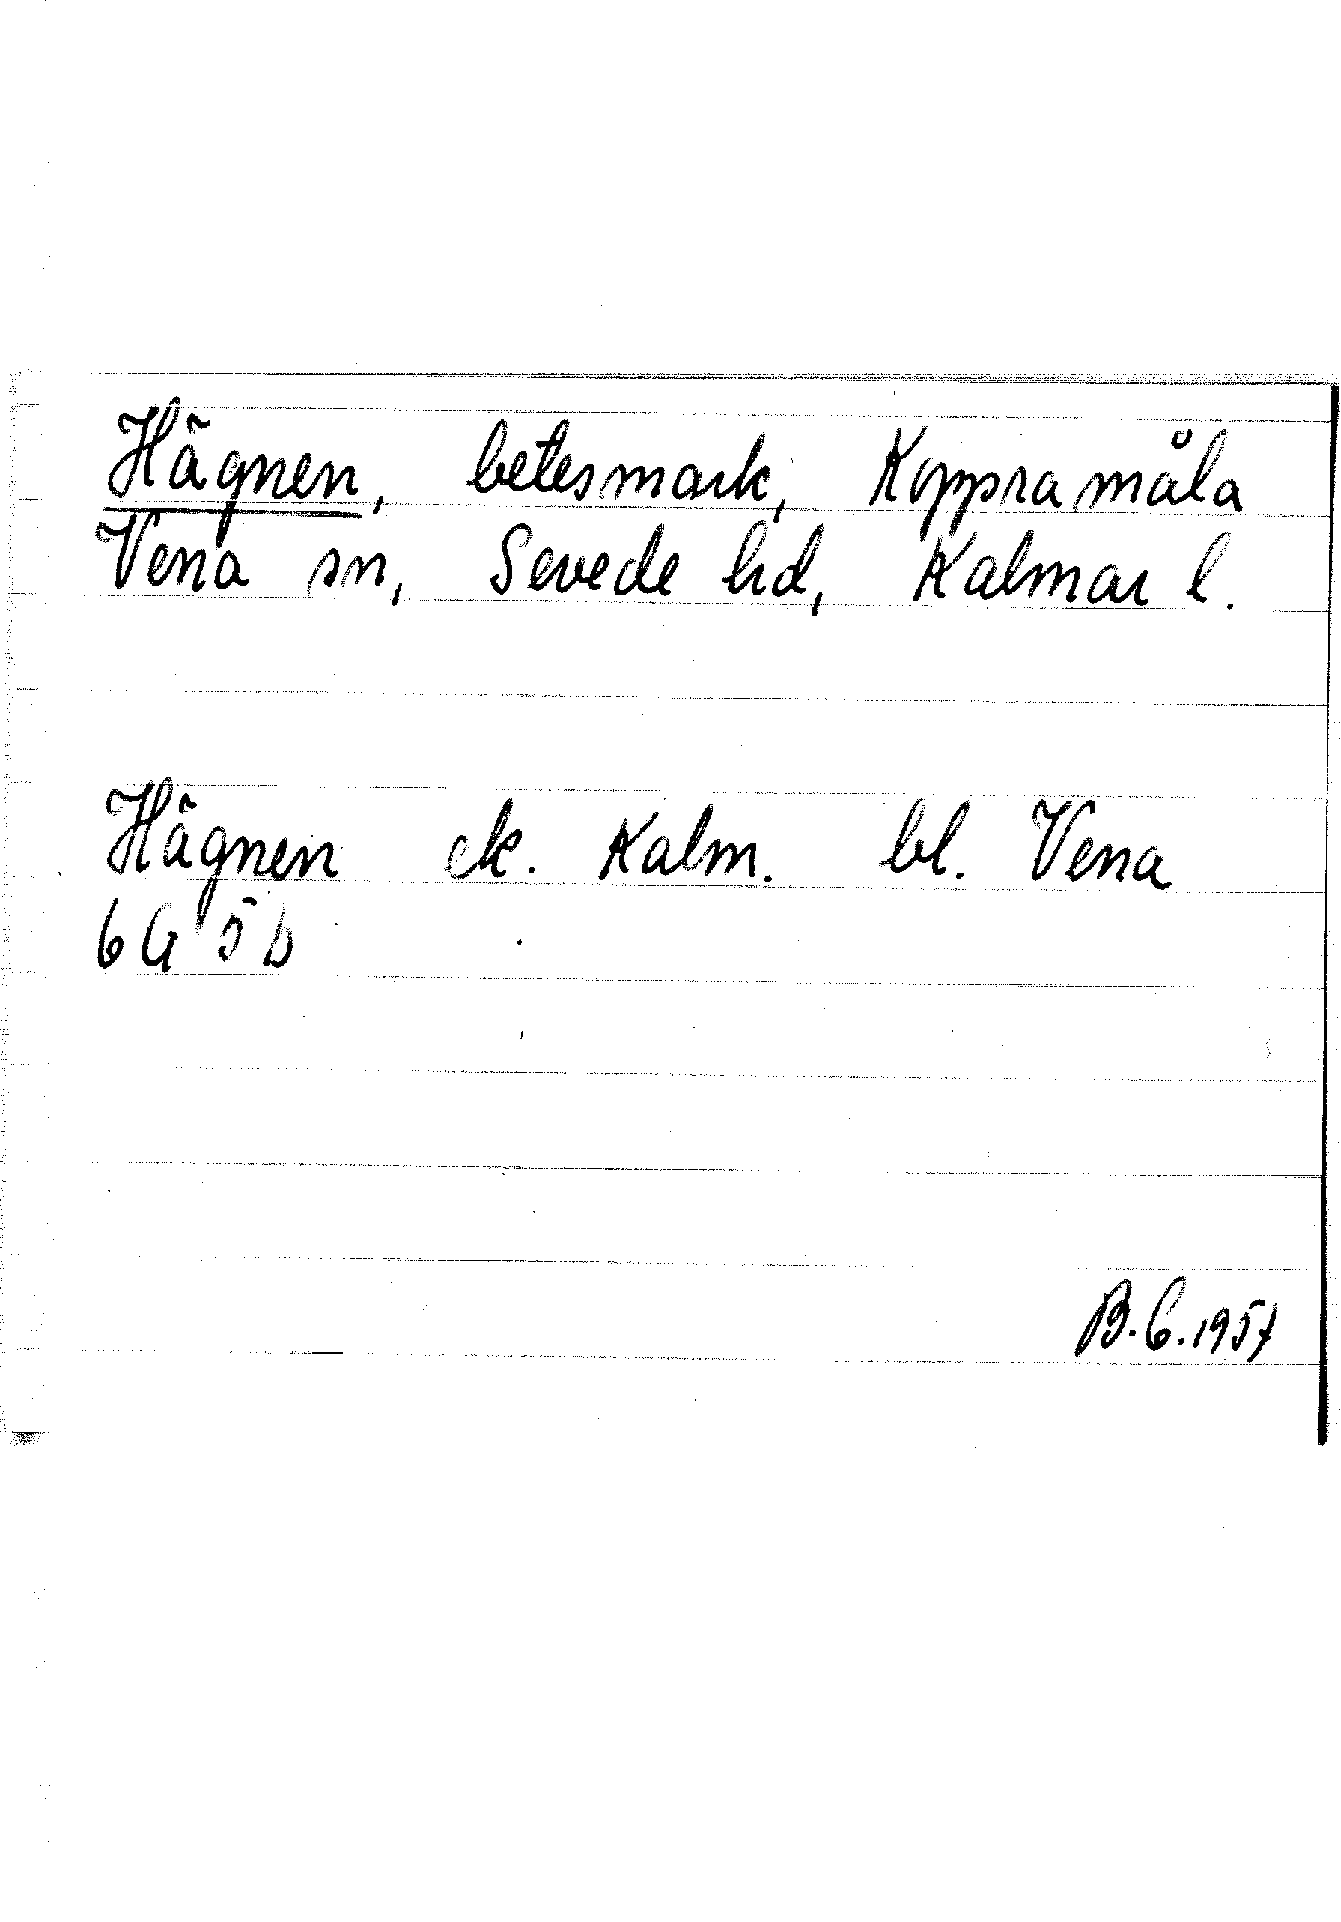 Hägnen, betesmark, Koppramåla
Vena sn, Sevede hd, Kalmar l.
Hägnen ek. Kalm. bl. Vena
6G 5b
B.C.1957